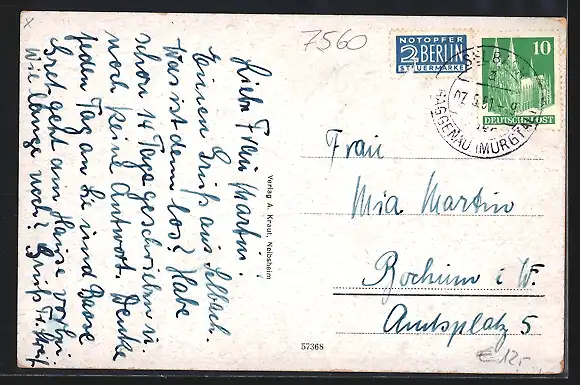 7560
NOTOPFER
2 BERLIN
STEUERMARKE
10
DEUTSCHE POST
GAGGENAU (MURGTAL)
Liebe Frau Martin!
Einen Gruß aus Selbach.
Was ist denn los? Habe
schon 14 Tage geschrieben u.
noch keine Antwort. Denke
jeden Tag an Sie und
geht am Hause vorbei.
Wie lange noch? Gruß
Verlag A. Kraut, Neibsheim
Frau
Mia Martin
Bochum i. W.
Amtsplatz 5
57368
€ 12,-